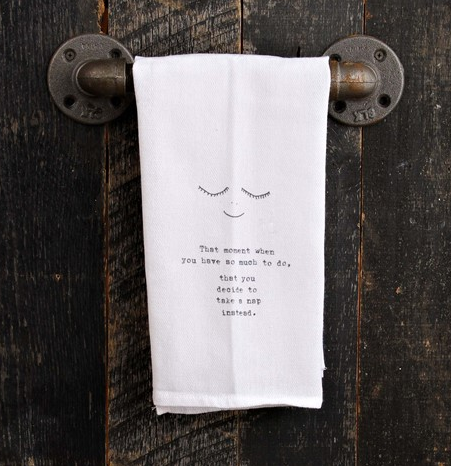 That moment when
you have so much to do,
that you
decide to
take a nap
instead.